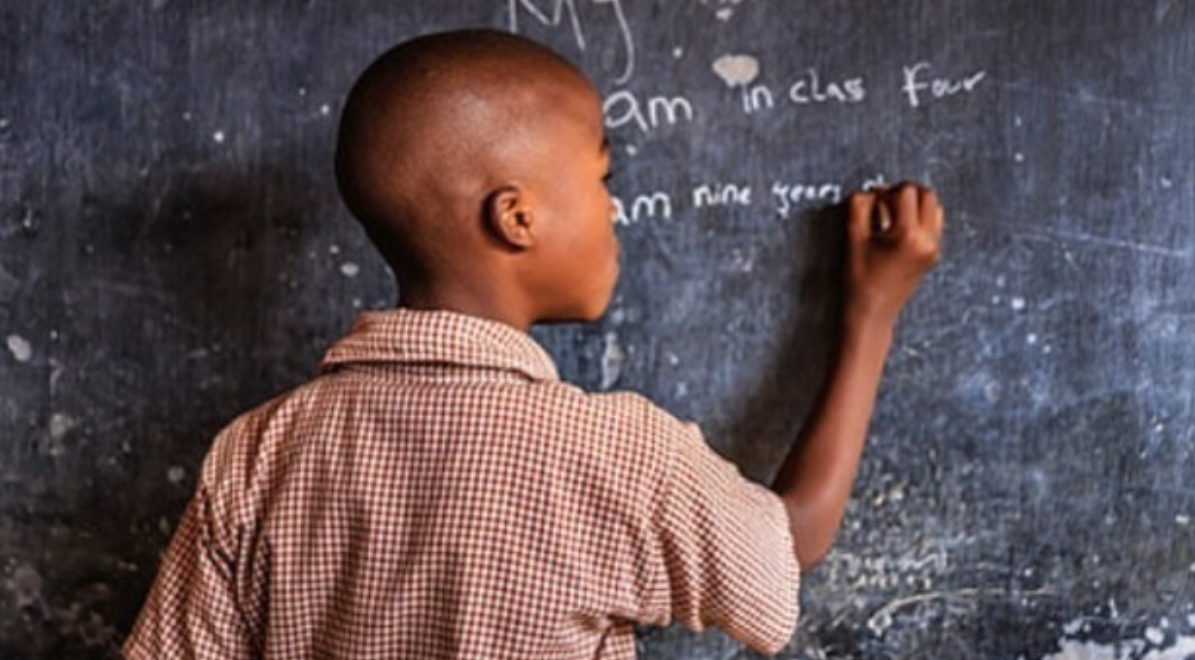 My
am in clas four
am nine years